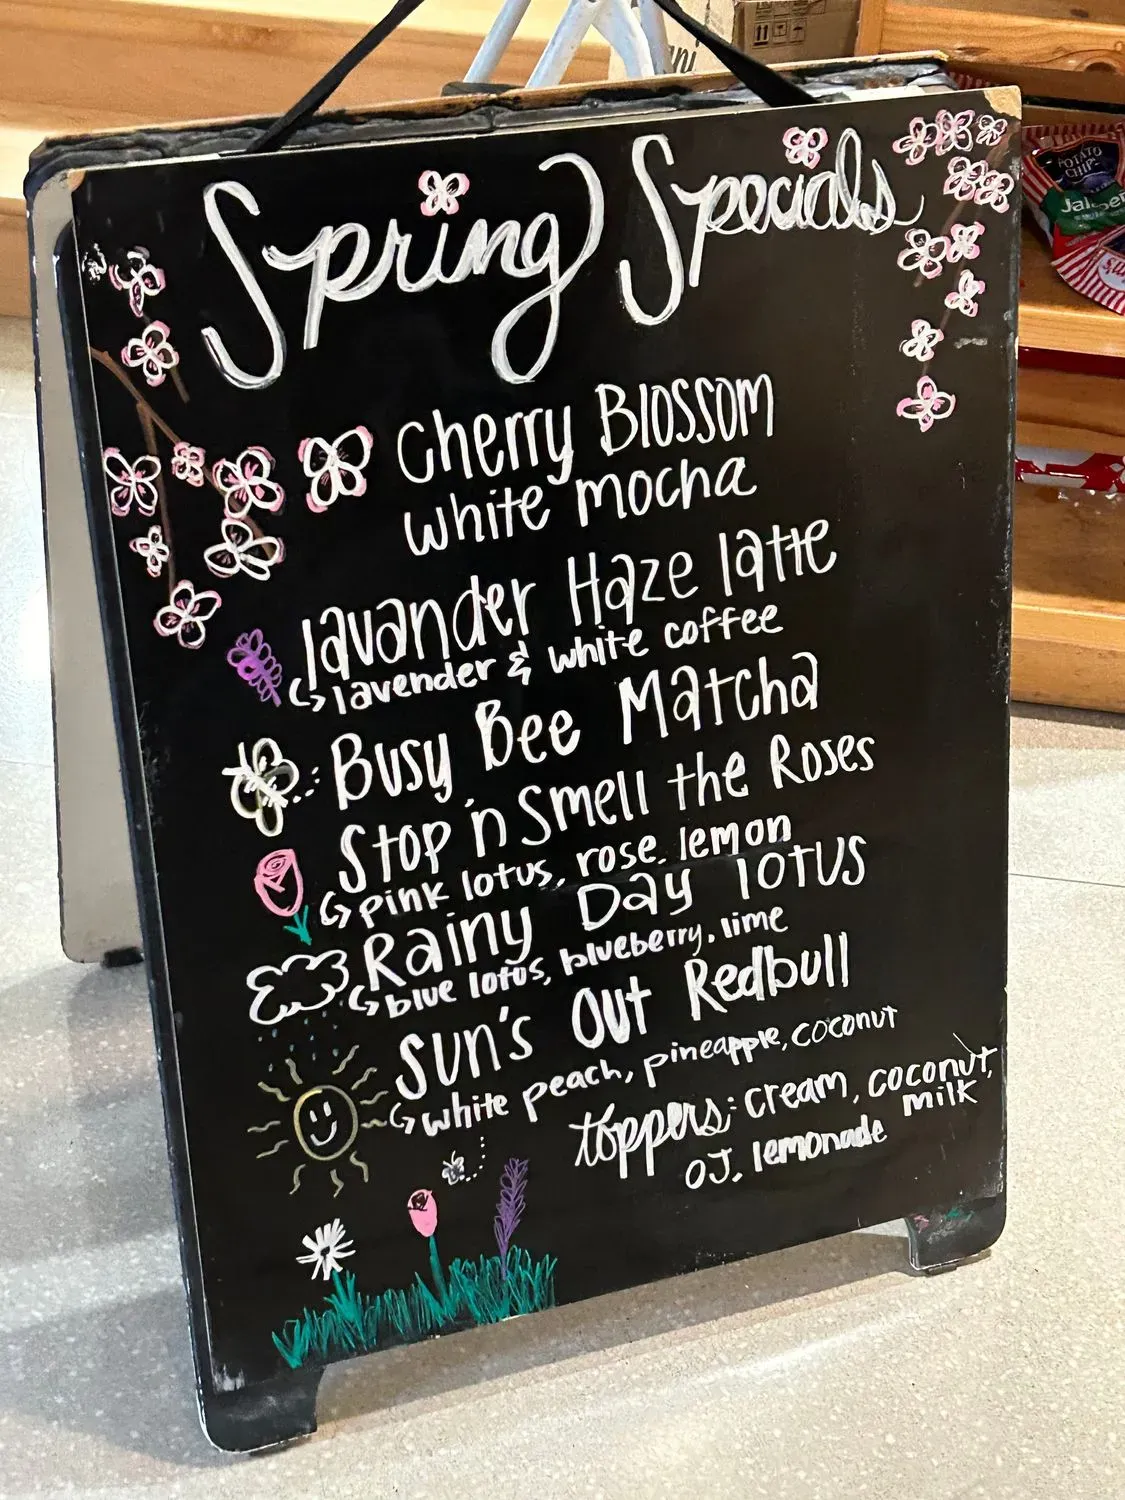 Spring Specials
Cherry Blossom
white mocha
lavander Haze latte
lavender & white coffee
Busy Bee Matcha
Stop 'n Smell the Roses
pink lotus, rose, lemon
Rainy Day lotus
blue lotus, blueberry, lime
Sun's Out Redbull
white peach, pineapple, coconut
toppers: cream, coconut,
milk
OJ, lemonade
POTATO
CHIP